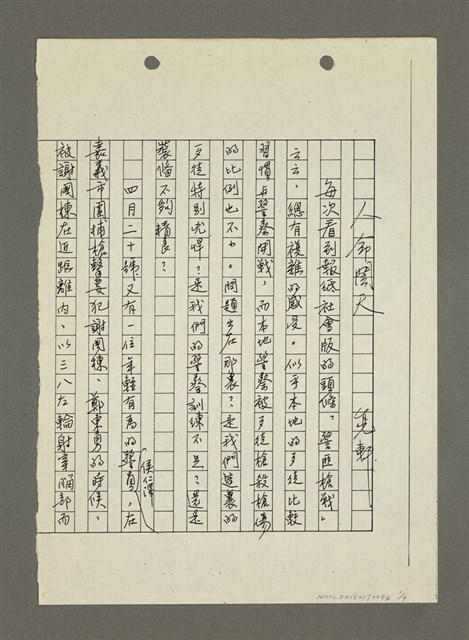 人命關天
堯軒
每次看到報紙社會版的頭條,「警匪槍戰」
云云,總有複雜的感受。似乎本地的歹徒比較
習慣與警察開戰,而本地警察被歹徒槍殺槍傷
的比例也不少。問題出在那裏?是我們這裏的
歹徒特別兇悍?是我們的警察訓練不足?還是
裝備不夠精良?
四月二十號又有一位年輕有為的警員(侯仁澤),在
嘉義市圍捕槍擊要犯謝國棟、鄭東勇的時候,
被謝國棟在近距離內、以三八左輪射穿胸部而
1/4